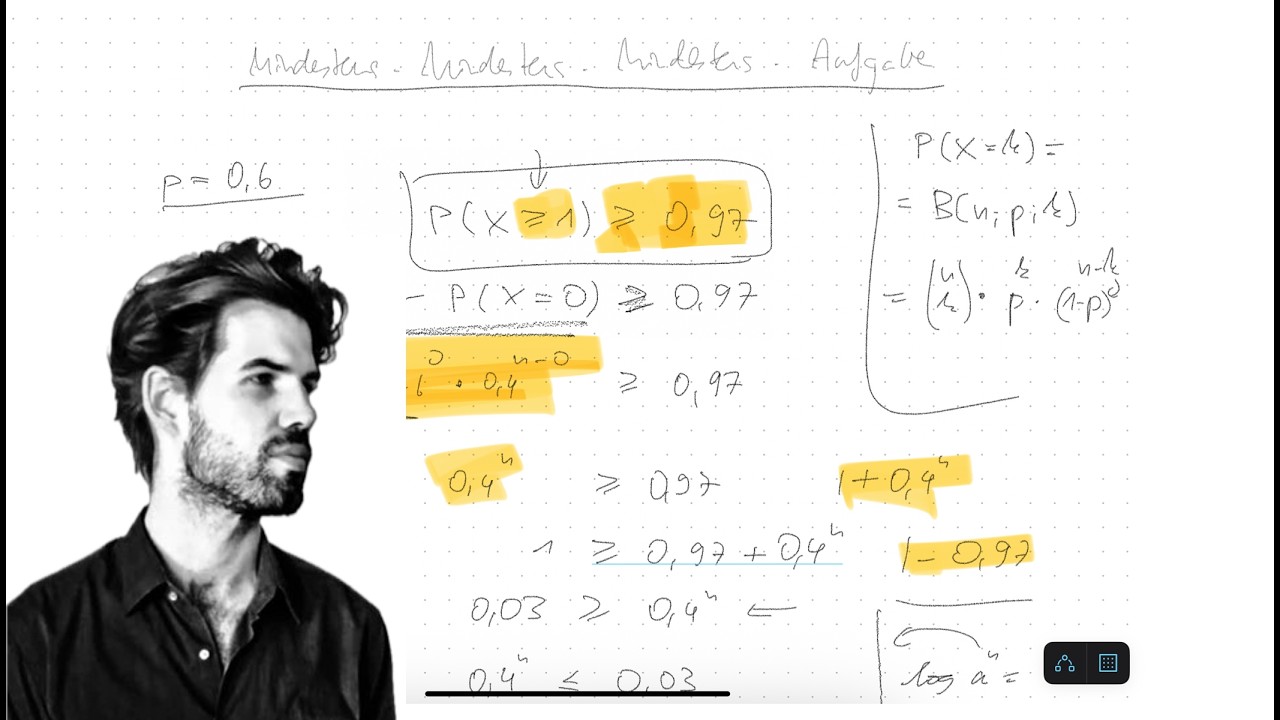 Mindestens - Mindestens - Mindestens - Aufgabe
p = 0,6
P(X ≥ 1) ≥ 0,97
- P(X = 0) ≥ 0,97
6⁰ · 0,4ⁿ⁻⁰ ≥ 0,97
0,4ⁿ ≥ 0,97 | + 0,4ⁿ
1 ≥ 0,97 + 0,4ⁿ | - 0,97
0,03 ≥ 0,4ⁿ ←
0,4ⁿ ≤ 0,03
P(X = k) =
= B(n; p; k)
= (n k) · pᵏ · (1-p)ⁿ⁻ᵏ
log aⁿ =